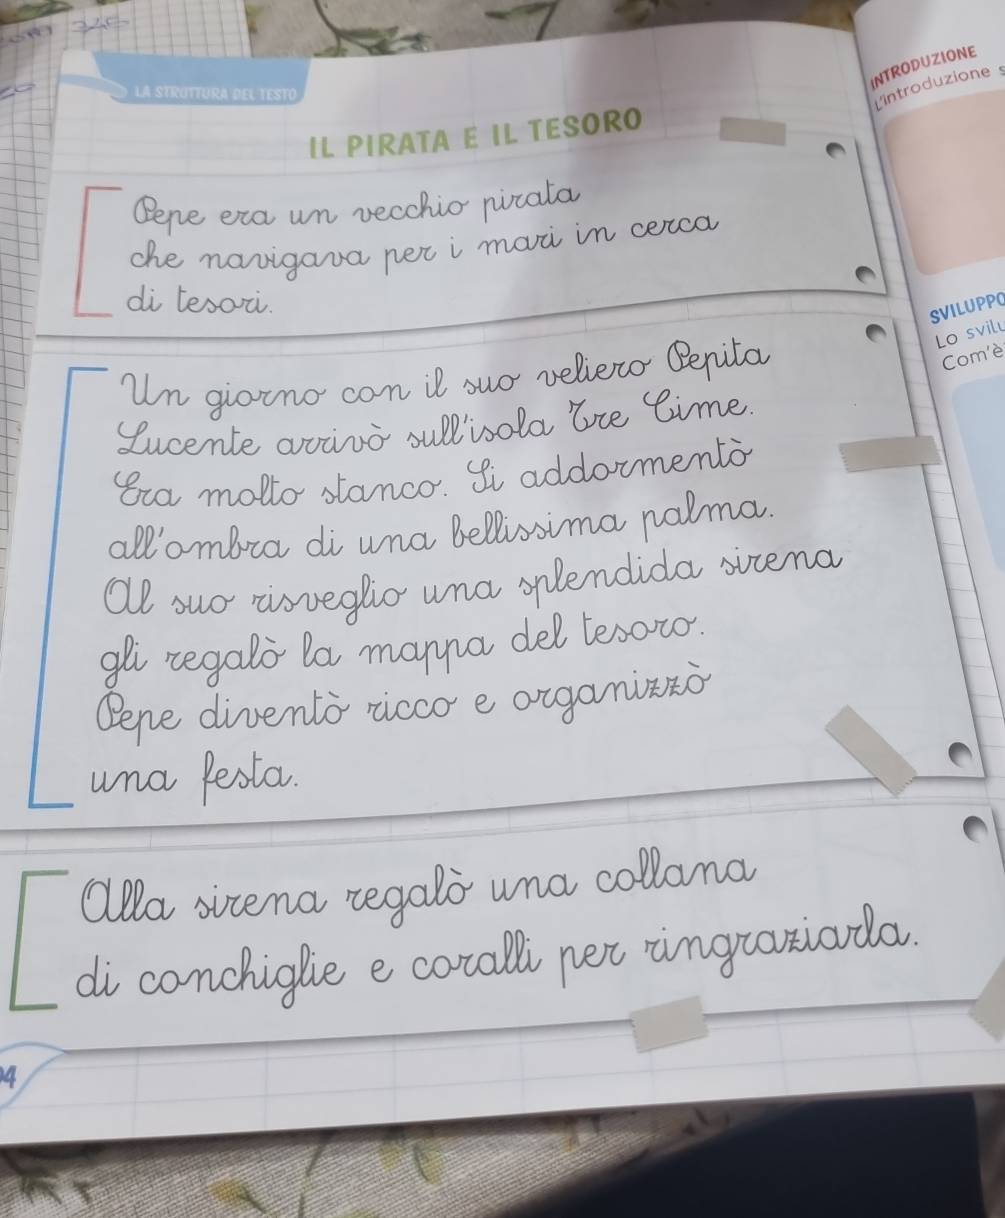 LA STRUTTURA DEL TESTO
IL PIRATA E IL TESORO
Pepe era un vecchio pirata
che navigava per i mari in cerca
di tesori.
Un giorno con il suo veliero Pepita
Lucente arrivò sull'isola Tre Cime.
Era molto stanco. Si addormentò
all'ombra di una bellissima palma.
Al suo risveglio una splendida sirena
gli regalò la mappa del tesoro.
Pepe diventò ricco e organizzò
una festa.
Alla sirena regalò una collana
di conchiglie e coralli per ringraziarla.
INTRODUZIONE
L'introduzione
SVILUPPO
Lo
Com'è